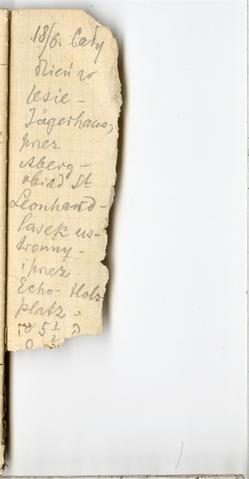 18/6. Cały
dzień w
lesie -
Jägerhaus,
przez
Aberg -
obiad St
Leonhard -
lasek us-
tronny -
i przez
Echo - Holz
platz -
w 5½